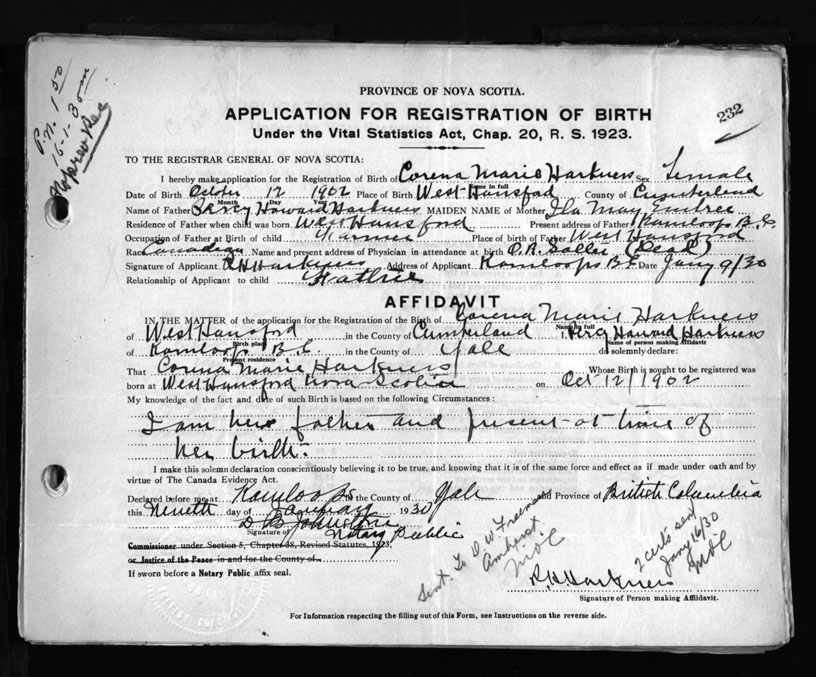 P.N. 1.50
16-1-30
232
PROVINCE OF NOVA SCOTIA.
APPLICATION FOR REGISTRATION OF BIRTH
Under the Vital Statistics Act, Chap. 20, R. S. 1923.
TO THE REGISTRAR GENERAL OF NOVA SCOTIA:
I hereby make application for the Registration of Birth of Corena Marie Harkness Sex Female
Name in full
Date of Birth October 12 1902 Place of Birth West Hansford County of Cumberland
Month Day Year
Name of Father Percy Howard Harkness MAIDEN NAME of Mother Ila May Embree
Residence of Father when child was born West Hansford Present address of Father Kamloops B.C.
Occupation of Father at Birth of child Farmer Place of birth of Father West Hansford
Race Canadian Name and present address of Physician in attendance at birth (Dead)
Signature of Applicant. P.H. Harkness Address of Applicant. Kamloops B.C. Date Jany 9/30
Relationship of Applicant to child Father
AFFIDAVIT
IN THE MATTER of the application for the Registration of the Birth of Corena Marie Harkness
Name in full
of West Hansford in the County of Cumberland I, Percy Howard Harkness
Birth place Name of person making affidavit
of Kamloops B.C. in the County of Yale do solemnly declare:
Present residence
That Corena Marie Harkness Whose Birth is sought to be registered was
born at West Hansford Nova Scotia on Oct 12/1902
My knowledge of the fact and date of such Birth is based on the following Circumstances:
I am her father and present at time of
her birth.
I make this solemn declaration conscientiously believing it to be true, and knowing that it is of the same force and effect as if made under oath and by
virtue of The Canada Evidence Act.
Declared before me at Kamloops in the County of Yale and Province of British Columbia
this Nineth day of January 1930
D B Johnstone
Signature of Notary Public
Commissioner under Section 5, Chapter 38, Revised Statutes, 1923,
or Justice of the Peace in and for County of
If sworn before a Notary Public affix seal.
Sent to O W Freeman
Amherst
2 certs sent
Jany 16/30
P.H. Harkness
Signature of Person making Affidavit.
For Information respecting the filling out of this Form, see Instructions on the reverse side.